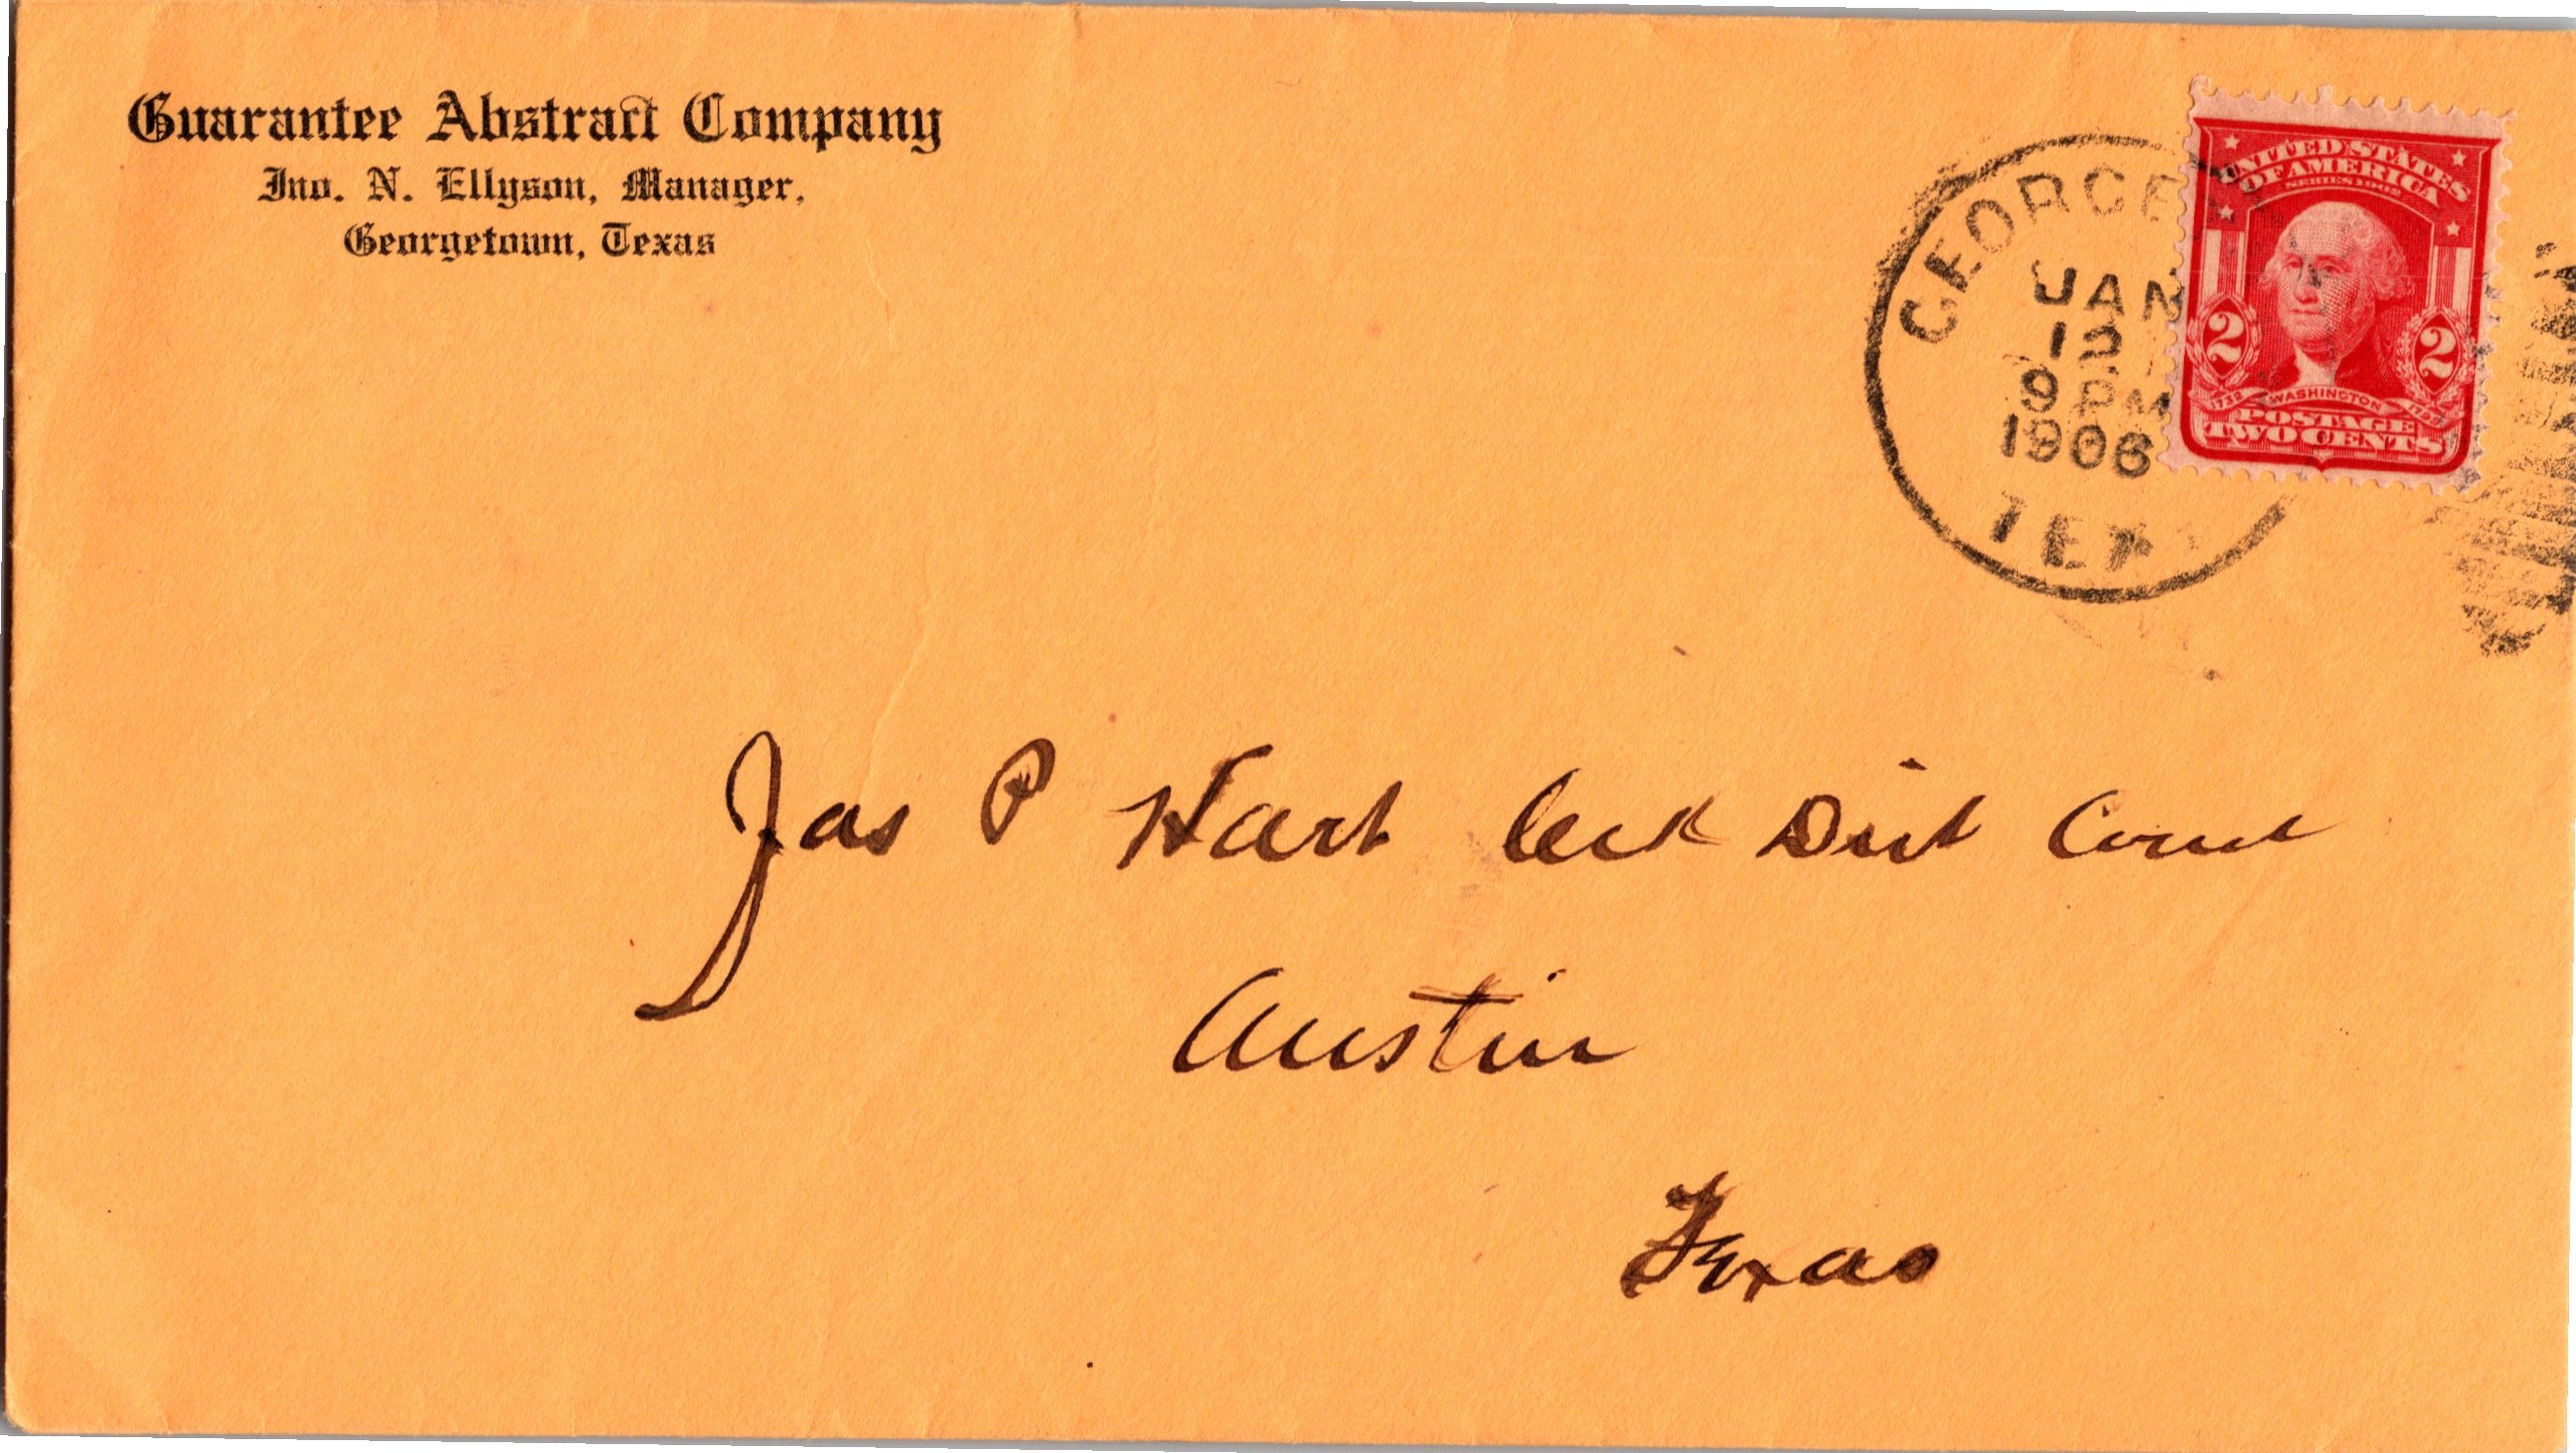 Guarantee Abstract Company
Jno. N. Ellyson, Manager,
Georgetown, Texas
GEORGE
JAN
12
9 PM
1906
TEX
UNITED STATES
OF AMERICA
SERIES 1902
2 2
1732 WASHINGTON 1799
POSTAGE
TWO CENTS
Jas P Hart Clerk Dist Court
Austin
Texas